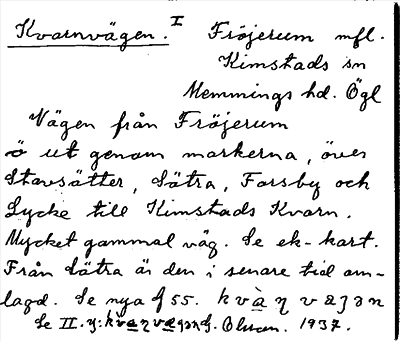 Kvarnvägen. I Fröjerum mfl.
Kimstads sn
Memmings hd. Ögl
Vägen från Fröjerum
ö ut genom markerna, över
Stavsätter, Sätra, Forsby och
Lycke till Kimstads Kvarn.
Mycket gammal väg. Se ek-kart.
Från Sätra är den i senare tid om-
lagd. Se nya § 55.
Se II. Olsson. 1937.